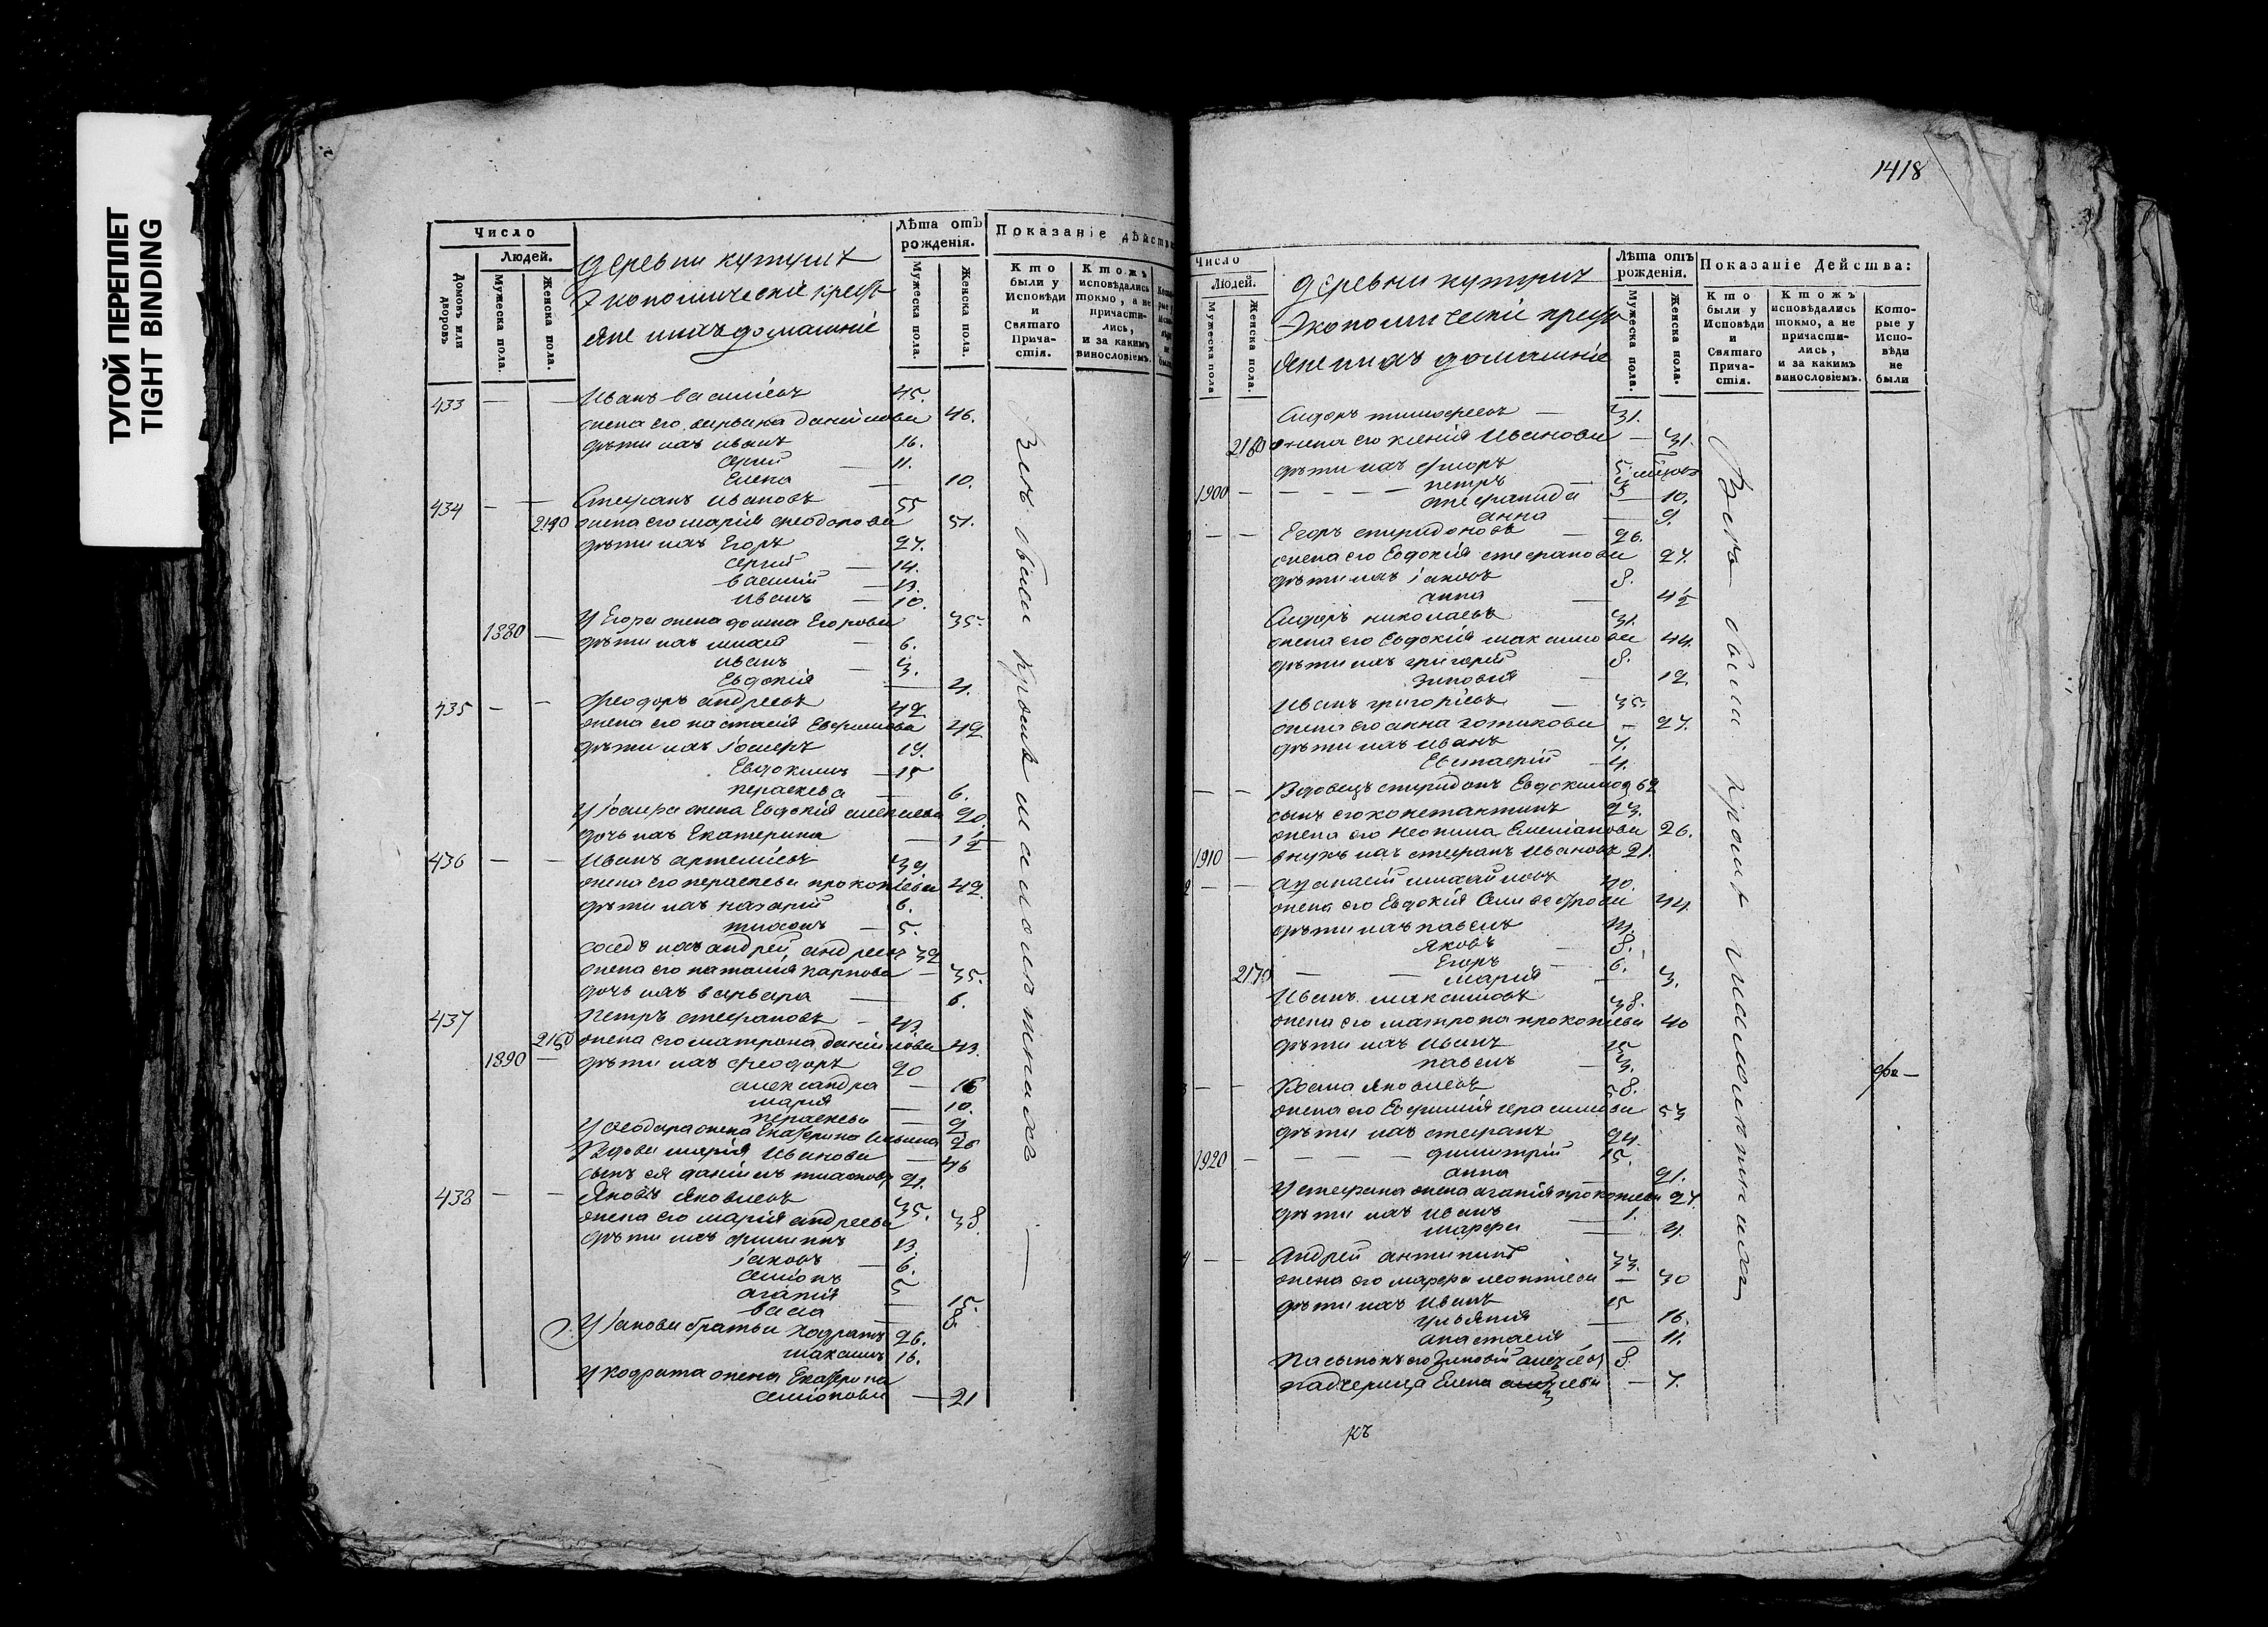 ТУГОЙ ПЕРЕПЛЕТ
TIGHT BINDING
Число
Людей.
Домовъ или дворовъ
Мужеска пола.
Женска пола.
деревни
Экономическіе кресть
яне ихъ домашніе
Лѣта отъ рожденія.
Мужеска пола.
Женска пола.
Показаніе дѣйства
Кто были у Исповѣди и Святаго Причастія.
Ктожъ исповѣдались токмо, а не причастились, и за какимъ винословіемъ.
433 — Иванъ Василіевъ 45.
жена его Даніилова 46.
дѣти ихъ Иванъ 16.
Сергій — 11.
Елена — 10.
434 — — Стефанъ Ивановъ 55
2140 жена его Марія Феодорова 51.
дѣти ихъ Егоръ 27.
Сергій — 14.
Василій — 13.
Иванъ — 10.
У Егора жена Домна Егорова 35.
1880 — дѣти ихъ 6.
Иванъ — 3.
Евдокія — 4.
435 — — Феодоръ Андреевъ 42
жена его Настасія Ефимова 42
дѣти ихъ Іосифъ 19.
Евдокимъ — 15
Параскева — 6.
У Іосифа жена Евдокія Алексіева 20.
дочь ихъ Екатерина — 1 1/2
436 — — Иванъ Артеміевъ 39
жена его Параскева Прокопіева 42.
дѣти ихъ Назарій 6.
Тихонъ — 5.
Сосѣдъ ихъ Андрей Андреевъ 32
жена его Наталія Карпова — 35.
дочь ихъ Варвара — 6.
437 Петръ Стефановъ — 43.
2150 жена его Матрона Даніилова 43.
1890 — дѣти ихъ Феодоръ 20
Александра — 16
Марія — 10.
Параскева — 2
У Феодора жена Екатерина 26
Вдова Марія Иванова — 46
сынъ ея Даніилъ Тихоновъ 21.
438 — — Яковъ Яковлевъ 35.
жена его Марія Андреева 38
дѣти ихъ Филиппъ 13
Іаковъ — 6.
Симіонъ 5
Агапія — 15.
Васса — 8.
У Іакова братья Кодратъ 26.
Максимъ 16.
У Кодрата жена Екатерина
Симіонова — 21
Всѣ были кромѣ малолѣтнихъ —
1418
Число
Людей.
Мужеска пола
Женска пола.
деревни
Экономическіе кресть
яне ихъ домашніе
Лѣта отъ рожденія.
Мужеска пола.
Женска пола.
Показаніе Дѣйства:
Кто были у Исповѣди и Святаго Причастія.
Ктожъ исповѣдались токмо, а не причастились, и за какимъ винословіемъ.
Которые у Исповѣди не были
Сидоръ Тимофеевъ — 31.
2160 жена его Ксенія Иванова — 31.
дѣти ихъ 5
1900 — — — — — Петръ — 3
Стефанида — 10.
Анна — 9.
— — Егоръ Спиридоновъ — 26.
жена его Евдокія Стефанова 27.
дѣти ихъ Іаковъ 8.
Анна — 4 1/2
Сидоръ Николаевъ 31.
жена его Евдокія Максимова 44.
дѣти ихъ Григорій 8.
Зиновія — 12.
Иванъ Григоріевъ — 35.
жена его Анна — 27.
дѣти ихъ Иванъ 7.
Евстафій — 4.
— — Вдовецъ Спиридонъ Евдокимов 62
сынъ его Константинъ 23.
жена его Неонила Емеліанова 26.
1910 — внукъ ихъ Стефанъ Ивановъ 21.
— — Афанасій Михайловъ 40.
жена его Евдокія 44.
дѣти ихъ Павелъ
Яковъ — 8.
Егоръ — 6.
2170 — — Марія — 3.
Иванъ Максимовъ 38.
жена его Матрона Прокопіева 40
дѣти ихъ Иванъ 15
Павелъ — 3.
— — Козма Яковлевъ 58.
жена его Евфимія Герасимова 53
дѣти ихъ Стефанъ 24.
1920 — — — — Димитрій 15.
Анна — 21.
У Стефана жена Агапія Прокопіева 27.
дѣти ихъ Иванъ — 1.
Марфа — 4.
— — Андрей Антипинъ 33.
жена его Марфа Леонтіева — 30
дѣти ихъ Иванъ 15
Ульянія — 16.
Анастасія — 11.
Пасынокъ его Зиновій 8.
Падчерица Елена — 7.
Всѣ были кромѣ малолѣтнихъ
къ